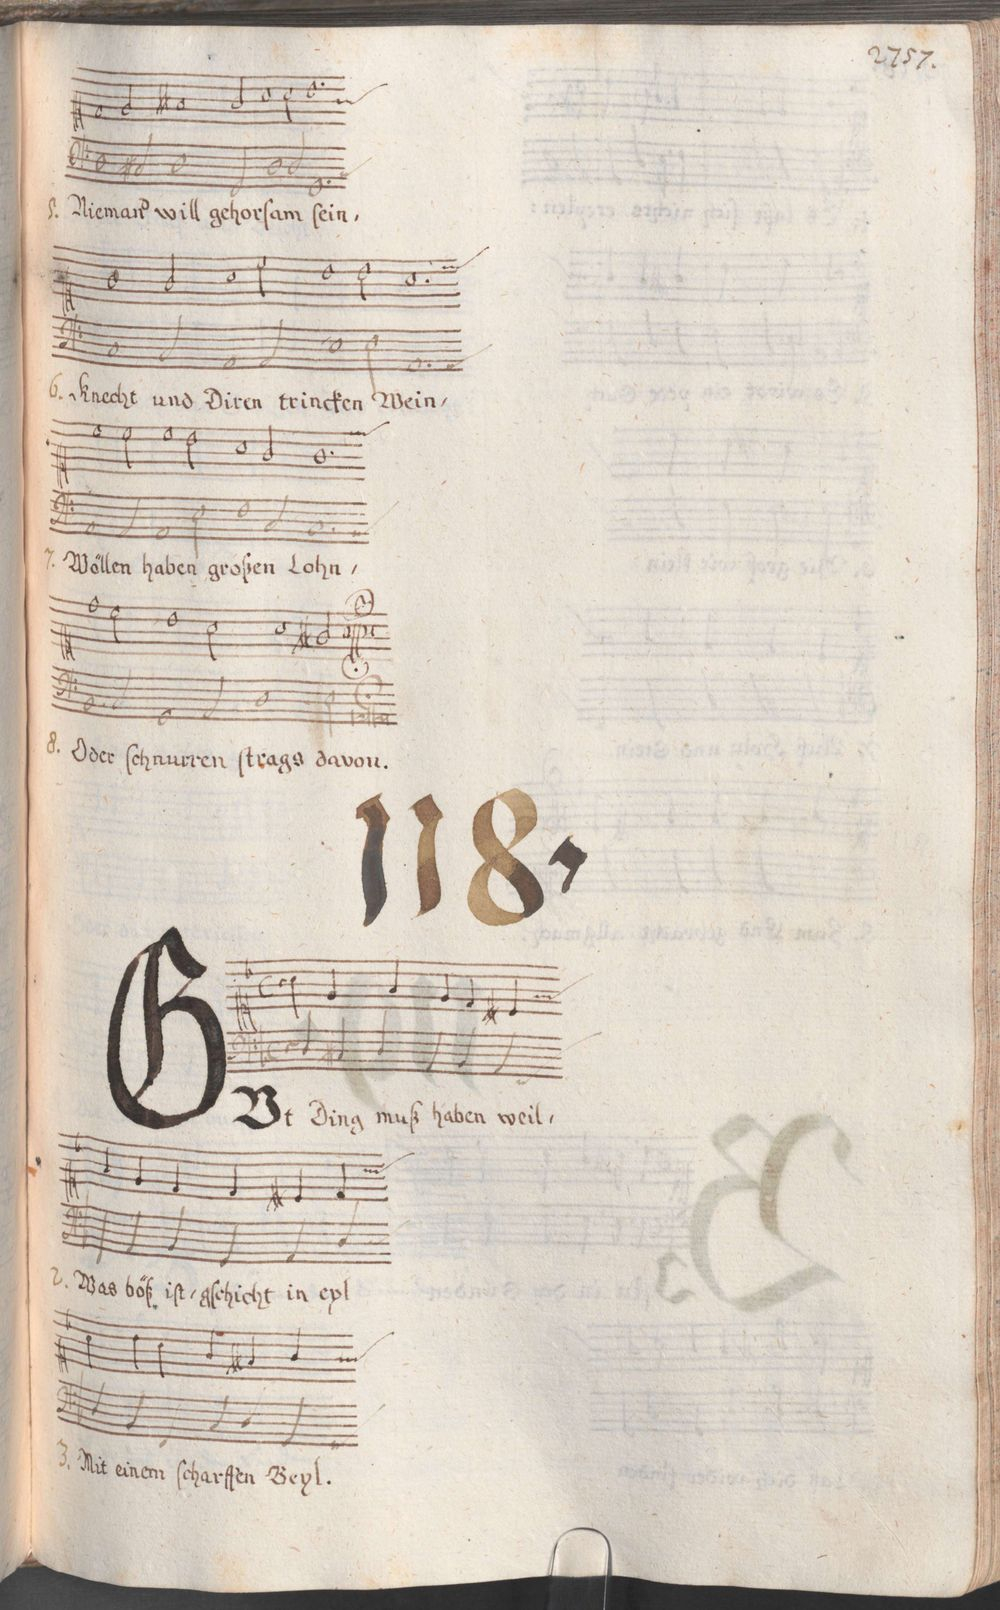 2757.
5. Niemand will gehorsam sein,
6. Knecht und Diren trincken Wein,
7. Wöllen haben großen Lohn,
8. Oder schnurren strags davon.
118.
GUt Ding muß haben weil,
2. Was böß ist, gschicht in eyl
3. Mit einem scharffen Beyl.